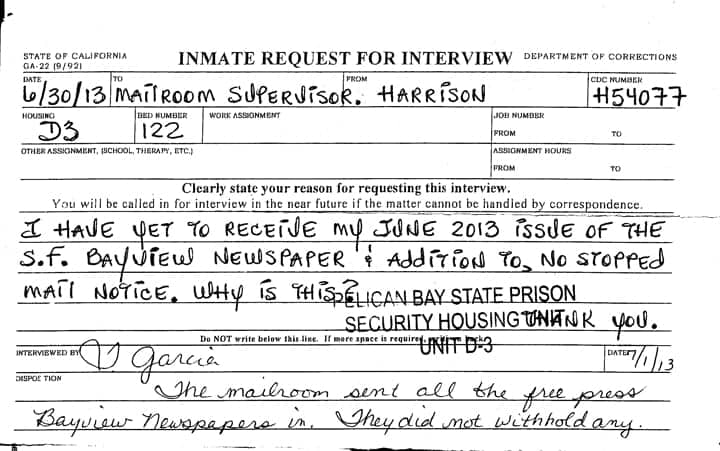 STATE OF CALIFORNIA
GA-22 (9/92)
INMATE REQUEST FOR INTERVIEW
DEPARTMENT OF CORRECTIONS
DATE TO FROM CDC NUMBER
6/30/13 MAILROOM SUPERVISOR. HARRISON H54077
HOUSING BED NUMBER WORK ASSIGNMENT JOB NUMBER
D3 122 FROM TO
OTHER ASSIGNMENT, (SCHOOL, THERAPY, ETC.) ASSIGNMENT HOURS
FROM TO
Clearly state your reason for requesting this interview.
You will be called in for interview in the near future if the matter cannot be handled by correspondence.
I HAVE YET TO RECEIVE MY JUNE 2013 ISSUE OF THE
S.F. BAYVIEW NEWSPAPER & ADDITION TO, NO STOPPED
MAIL NOTICE. WHY IS THIS?
PELICAN BAY STATE PRISON
SECURITY HOUSING UNIT
THANK YOU.
UNIT D-3
Do NOT write below this line. If more space is required,
INTERVIEWED BY J Garcia DATE 7/1/13
DISPOSITION
The mailroom sent all the free press
Bayview Newspapers in. They did not withhold any.